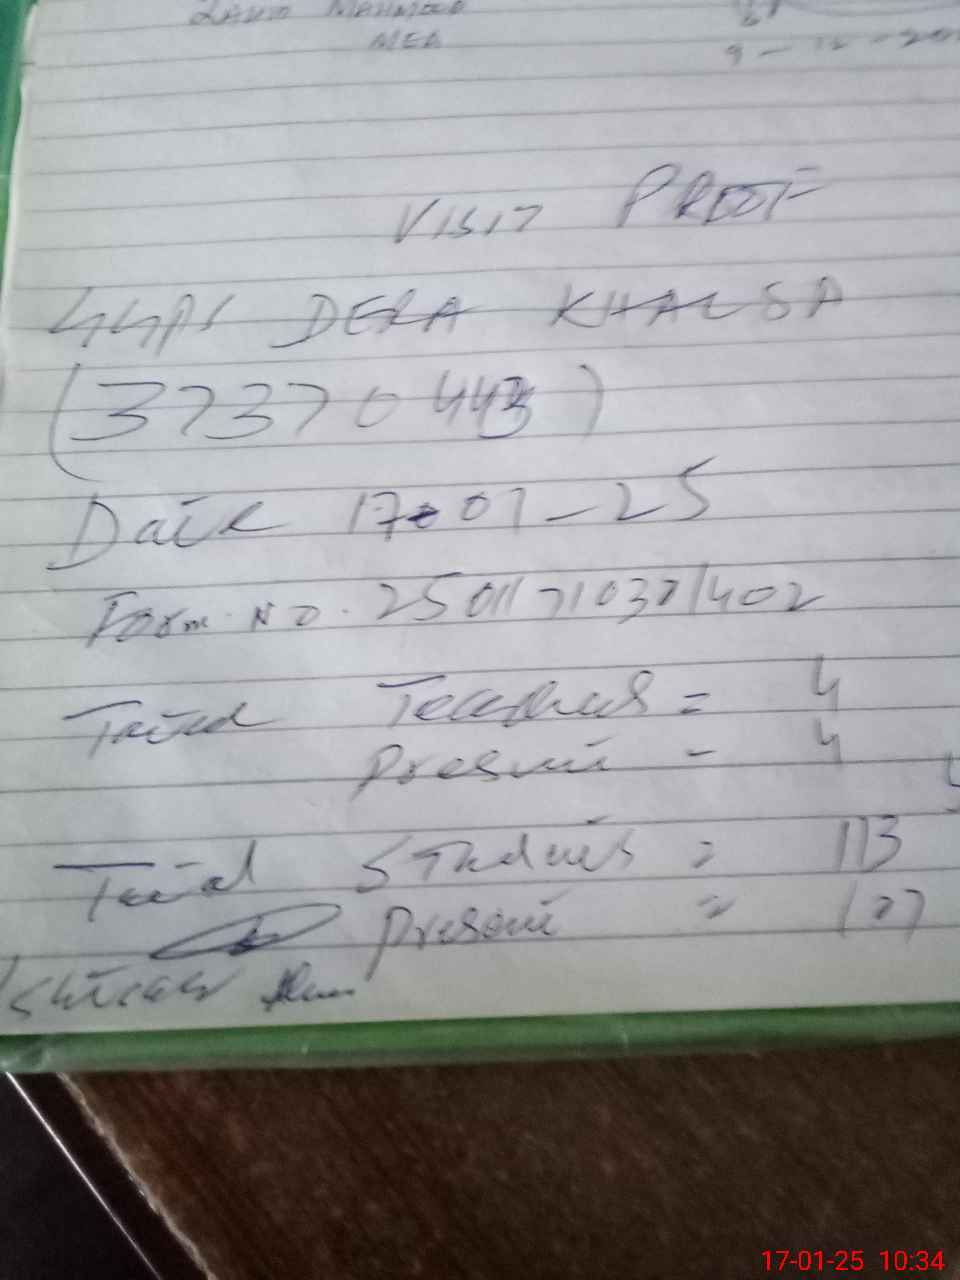 MAHMOOD
AEO
9-12-20
VISIT PROOF
GGPS DERA KHALSA
(37370443)
Date 17-01-25
Form No. 25011710371402
Total Teachers = 4
Present - 4
Total Students = 113
Present = 107
17-01-25 10:34